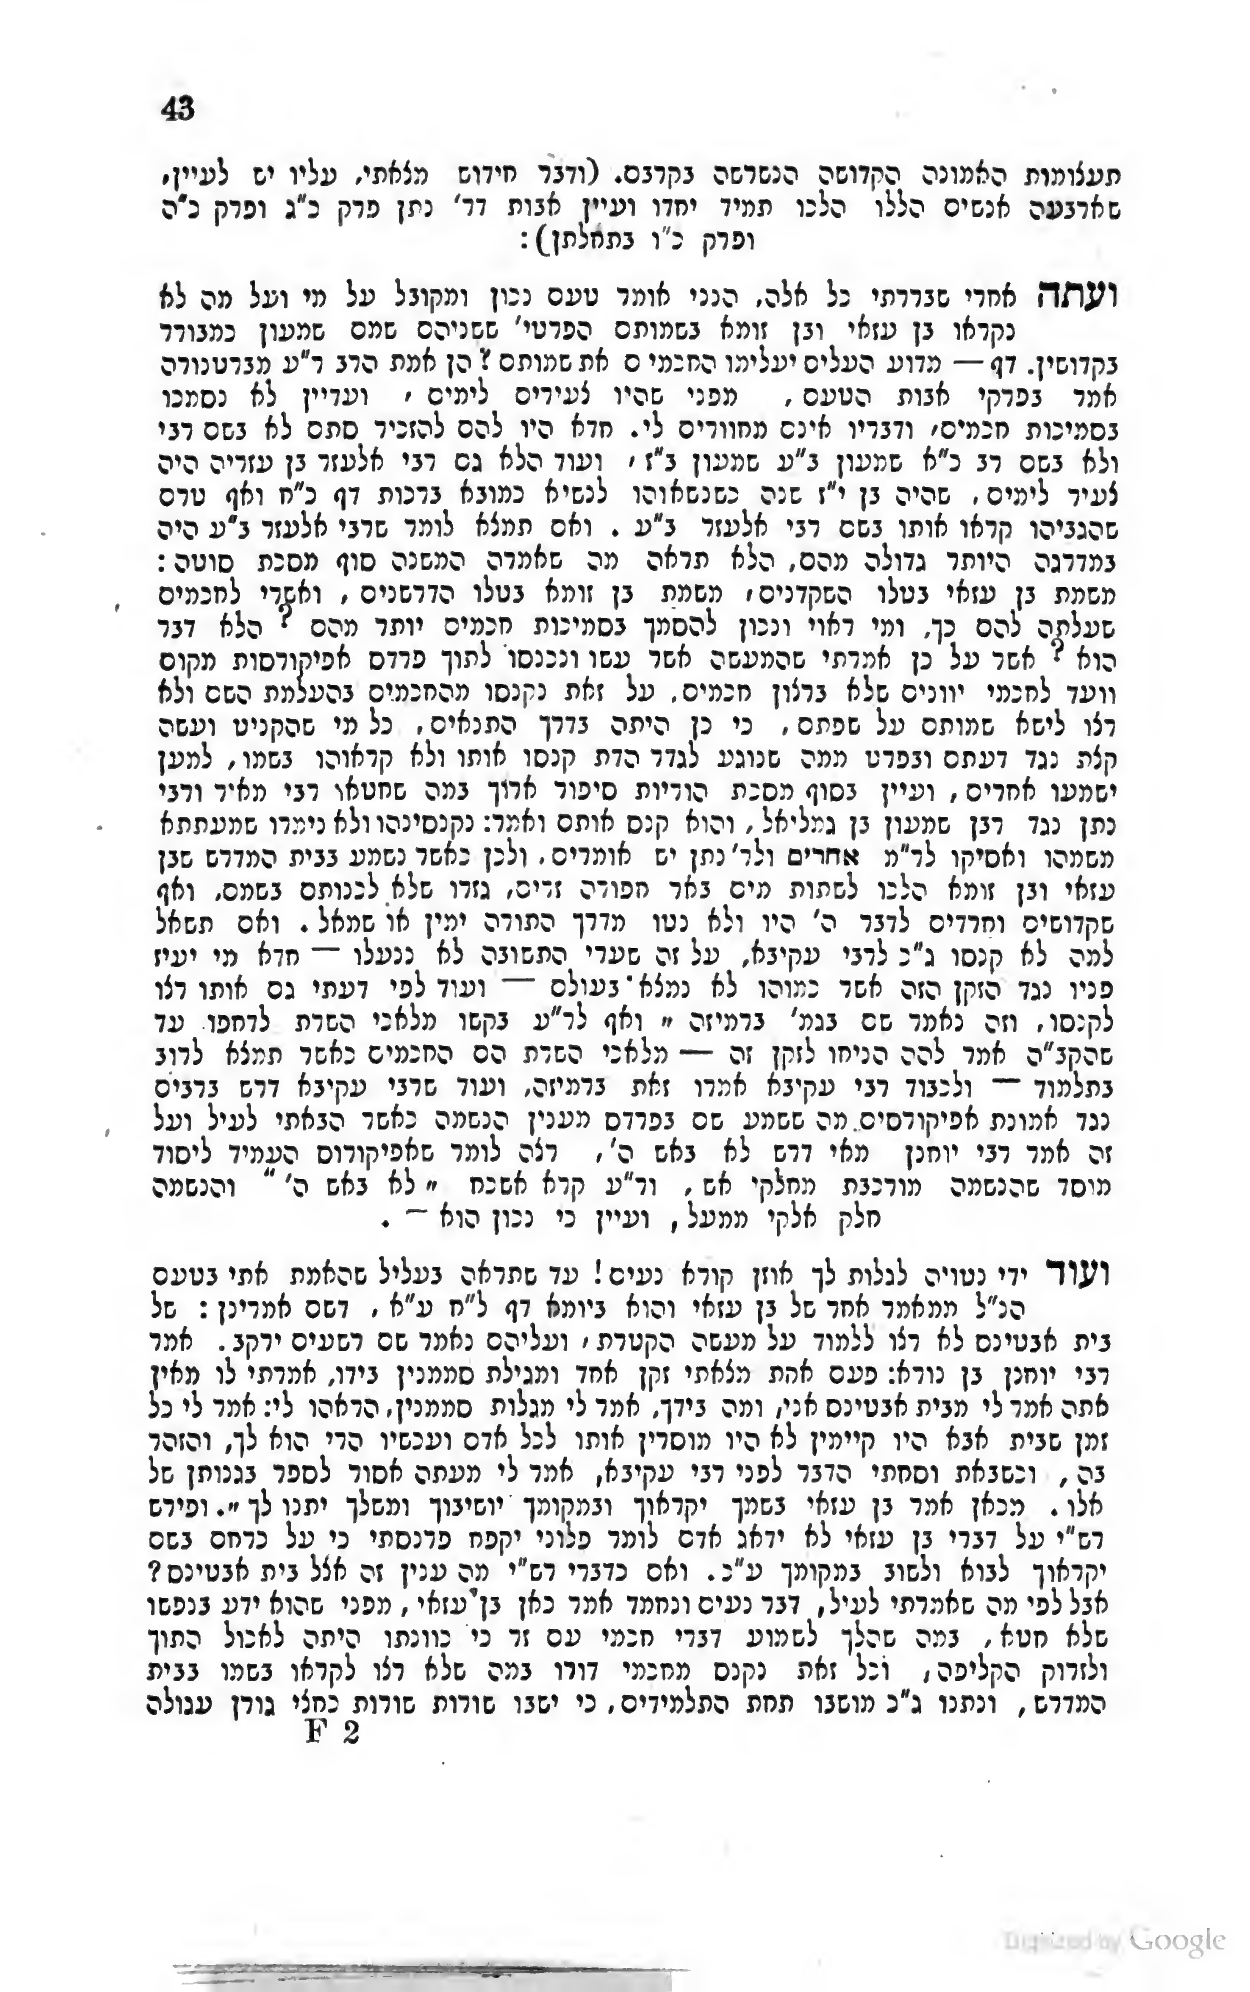 43
תעצומות האמונה הקדושה הנשרשה בקרבם. (ודבר חידוש מצאתי, עליו יש לעיין,
שארבעה אנשים הללו הלכו תמיד יחדו ועיין אבות דר' נתן פרק כ"ג ופרק כ"ה
ופרק כ"ו בתחלתן):
ועתה אחרי שבררתי כל אלה, הנני אומר טעם נכון ומקובל על מי ועל מה לא
נקראו בן עזאי ובן זומא בשמותם הפרטי' ששניהם שמם שמעון כמבורר
בקדושין. דף — מדוע העלים יעלימו החכמים את שמותם? הן אמת הרב ר"ע מברטנורה
אמר בפרקי אבות הטעם, מפני שהיו צעירים לימים, ועדיין לא נסמכו
בסמיכות חכמים, ודבריו אינם מחוורים לי. חדא היו להם להזכיר סתם לא בשם רבי
ולא בשם רב כ"א שמעון ב"ע שמעון ב"ז, ועוד הלא גם רבי אלעזר בן עזריה היה
צעיר לימים, שהיה בן י"ז שנה כשנשאוהו לנשיא כמובא ברכות דף כ"ח ואף טרם
שהגביהו קראו אותו בשם רבי אלעזר ב"ע. ואם תמצא לומר שרבי אלעזר ב"ע היה
במדרגה היותר גדולה מהם, הלא תראה מה שאמרה המשנה סוף מסכת סוטה:
משמת בן עזאי בטלו השקדנים, משמת בן זומא בטלו הדרשנים, ואשרי לחכמים
שעלתה להם כך, ומי ראוי ונכון להסמך בסמיכות חכמים יותר מהם? הלא דבר
הוא? אשר על כן אמרתי שהמעשה אשר עשו ונכנסו לתוך פרדס אפיקורסות מקום
וועד לחכמי יוונים שלא ברצון חכמים, על זאת נקנסו מהחכמים בהעלמת השם ולא
רצו לישא שמותם על שפתם, כי כן היתה בדרך התנאים, כל מי שהקניט ועשה
קצת נגד דעתם ובפרט ממה שנוגע לגדר הדת קנסו אותו ולא קראוהו בשמו, למען
ישמעו אחרים, ועיין בסוף מסכת הוריות סיפור ארוך במה שחטאו רבי מאיר ורבי
נתן נגד רבן שמעון בן גמליאל, והוא קנס אותם ואמר: נקנסינהו ולא נימרו שמעתתא
משמהו ואסיקו לר"מ אחרים ולר' נתן יש אומרים, ולכן כאשר נשמע בבית המדרש שבן
עזאי ובן זומא הלכו לשתות מים באר חפורה זרים, גזרו שלא לכנותם בשמם, ואף
שקדושים וחרדים לדבר ה' היו ולא נטו מדרך התורה ימין או שמאל. ואם תשאל
למה לא קנסו ג"כ לרבי עקיבא, על זה שערי התשובה לא ננעלו — חדא מי יעיז
פניו נגד הזקן הזה אשר כמוהו לא נמצא בעולם — ועוד לפי דעתי גם אותו רצו
לקנסו, וזה נאמר שם בגמ' ברמיזה „ ואף לר"ע בקשו מלאכי השרת לדחפו עד
שהקב"ה אמר להה הניחו לזקן זה — מלאכי השרת הם החכמים כאשר תמצא לרוב
בתלמוד — ולכבוד רבי עקיבא אמרו זאת ברמיזה, ועוד שרבי עקיבא דרש ברבים
נגד אמונת אפיקורסים מה ששמע שם בפרדס מענין הנשמה כאשר הבאתי לעיל ועל
זה אמר רבי יוחנן מאי דרש לא באש ה', רצה לומר שאפיקורוס העמיד ליסוד
מוסד שהנשמה מורכבת מחלקי אש, ור"ע קרא אשכח „ לא באש ה' " והנשמה
חלק אלקי ממעל, ועיין כי נכון הוא — .
ועוד ידי נטויה לגלות לך אוזן קורא נעים! עד שתראה בעליל שהאמת אתי בטעם
הנ"ל ממאמר אחד של בן עזאי והוא ביומא דף ל"ח ע"א, דשם אמרינן: של
בית אבטינס לא רצו ללמוד על מעשה הקטרת, ועליהם נאמר שם רשעים ירקב. אמר
רבי יוחנן בן נורא: פעם אחת מצאתי זקן אחד ומגילת סממנין בידו, אמרתי לו מאין
אתה אמר לי מבית אבטינס אני, ומה בידך, אמר לי מגלות סממנין, הראהו לי: אמר לי כל
זמן שבית אבא היו קיימין לא היו מוסרין אותו לכל אדם ועכשיו הרי הוא לך, והזהר
בה, וכשבאת וסחתי הדבר לפני רבי עקיבא, אמר לי מעתה אסור לספר בגנותן של
אלו. מכאן אמר בן עזאי בשמך יקראוך ובמקומך יושיבוך ומשלך יתנו לך „. ופירש
רש"י על דברי בן עזאי לא ידאג אדם לומר פלוני יקפח פרנסתי כי על כרחם בשם
יקראוך לבוא ולשוב במקומך ע"כ. ואם כדברי רש"י מה ענין זה אצל בית אבטינס?
אבל לפי מה שאמרתי לעיל, דבר נעים ונחמד אמר כאן בן עזאי, מפני שהוא ידע בנפשו
שלא חטא, במה שהלך לשמוע דברי חכמי עם זר כי כוונתו היתה לאכול התוך
ולזרוק הקליפה, וכל זאת נקנס מחכמי דורו במה שלא רצו לקראו בשמו בבית
המדרש, ונתנו ג"כ מושבו תחת התלמידים, כי ישבו שורות שורות כחצי גורן עגולה
F 2
Digitized by Google